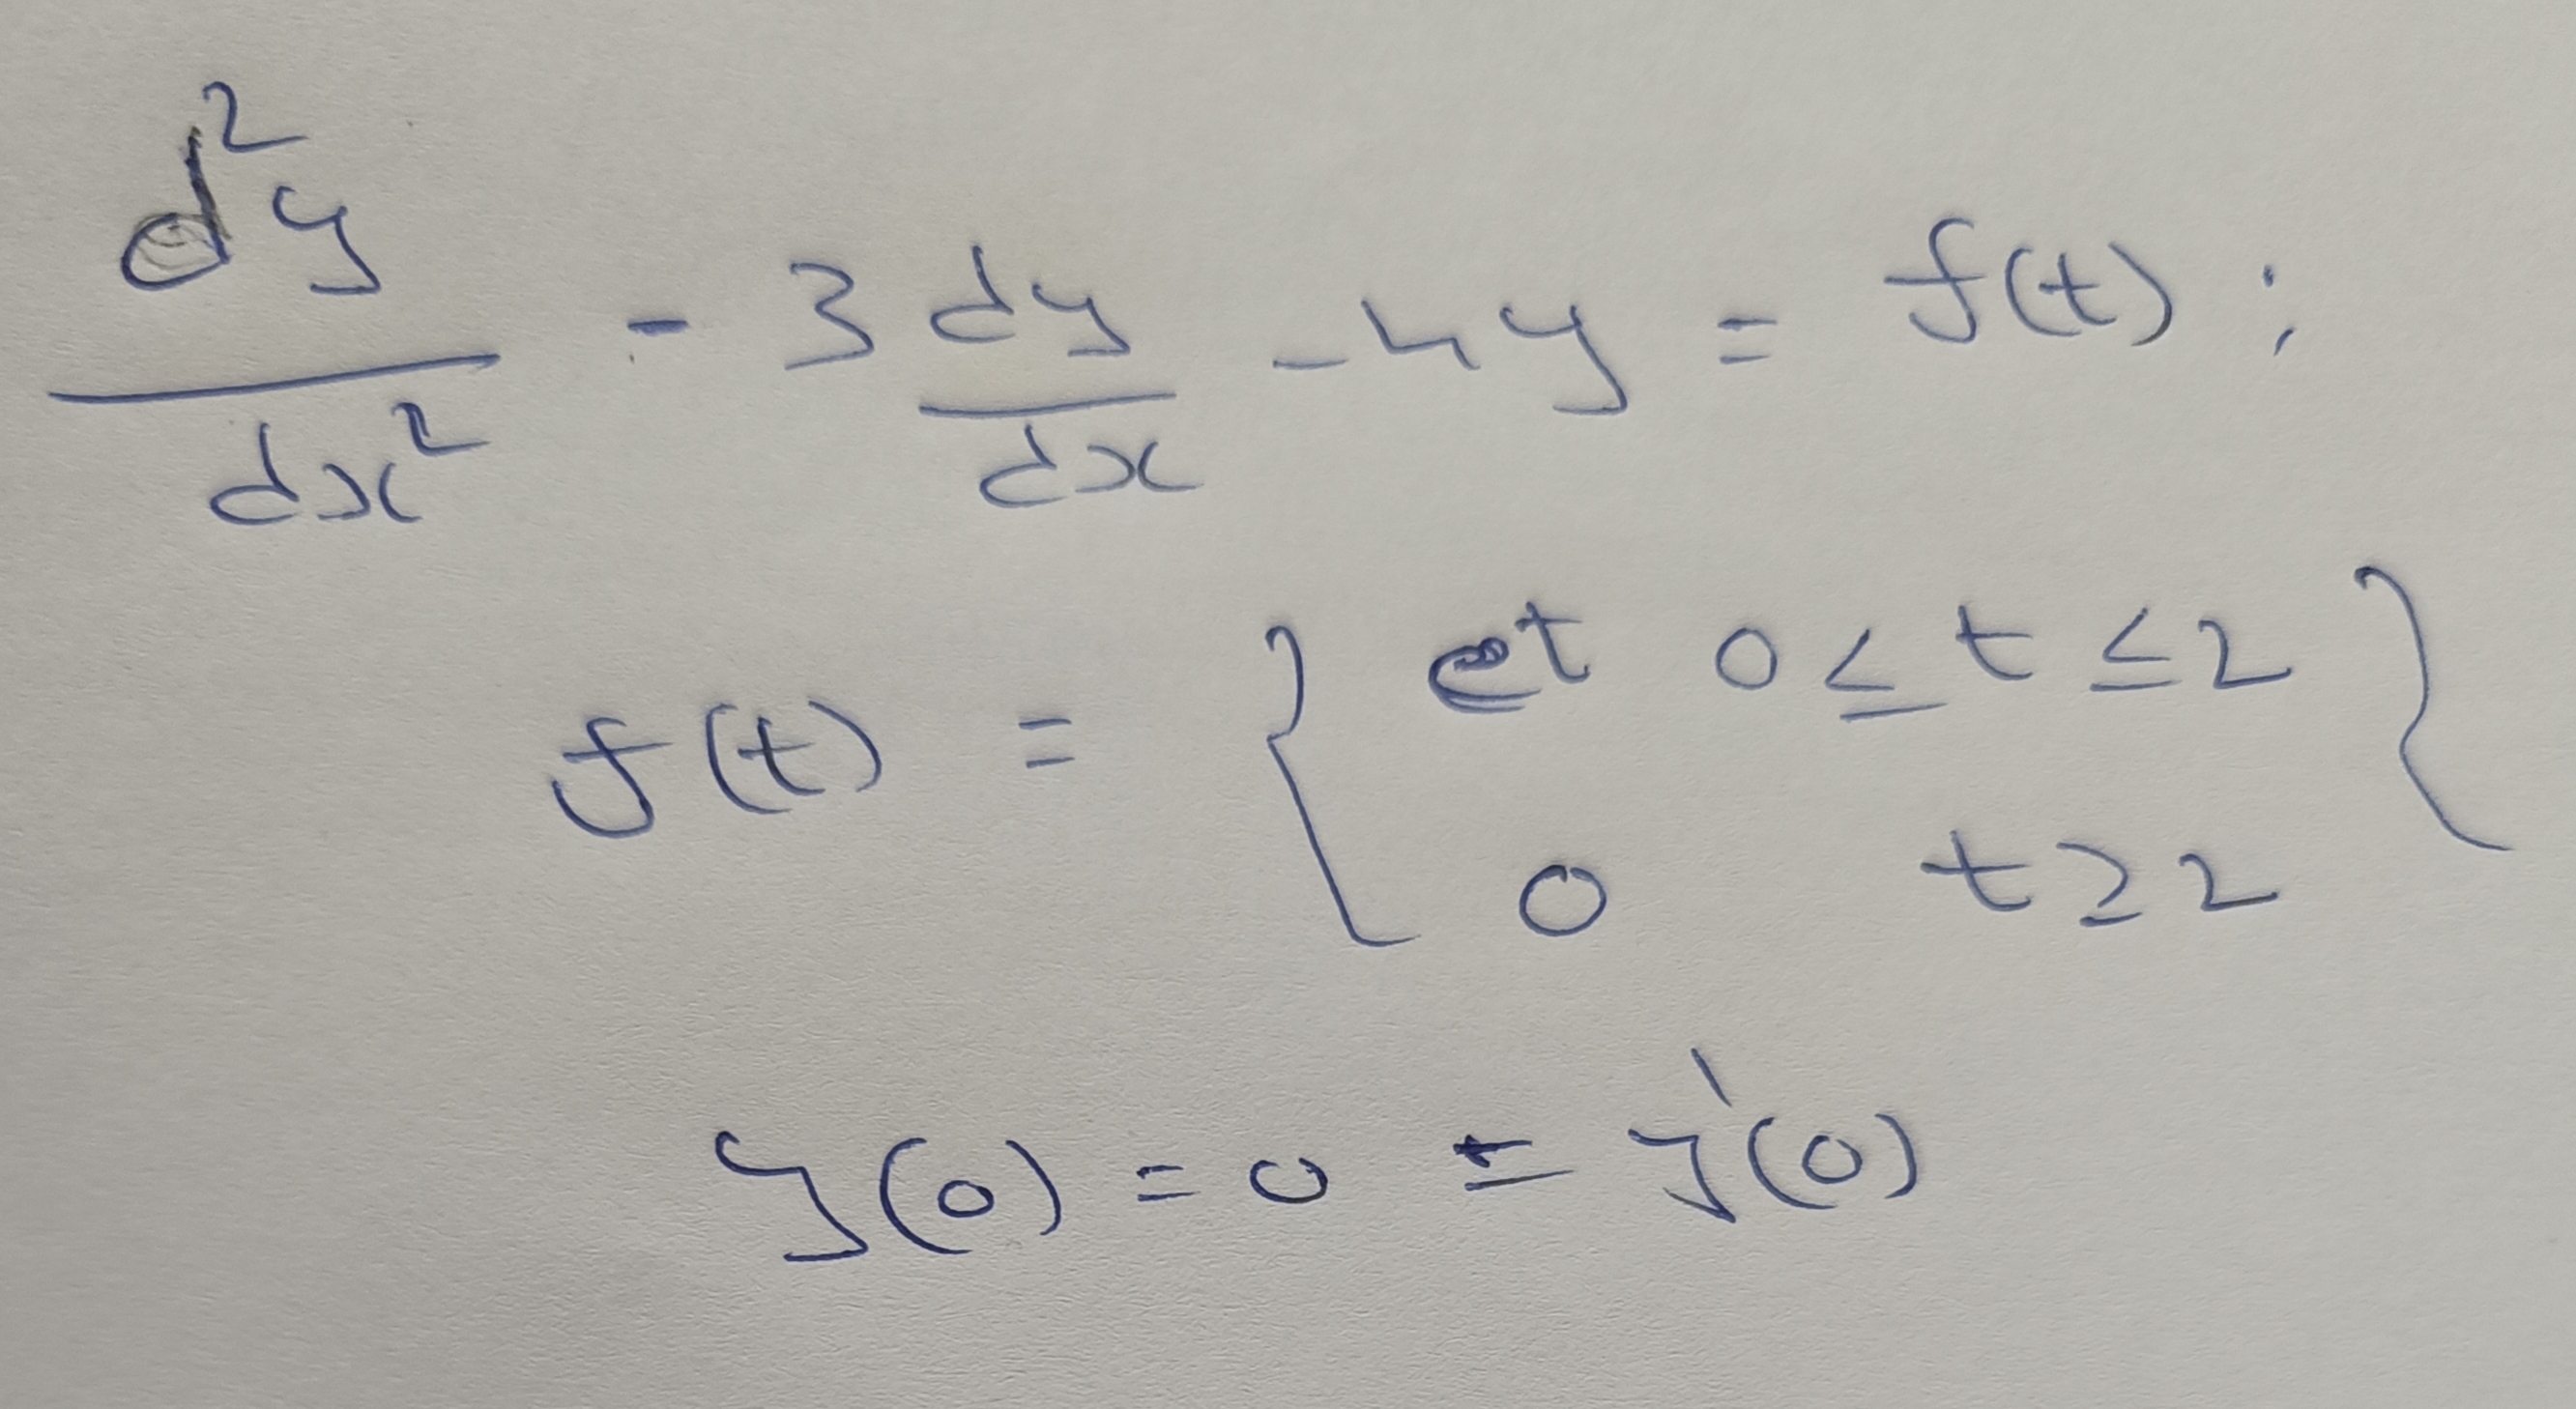 d²y/dx² - 3 dy/dx - 4y = f(t) ;
f(t) = { et 0 ≤ t ≤ 2
0 t ≥ 2 }
y(0) = 0 = y'(0)